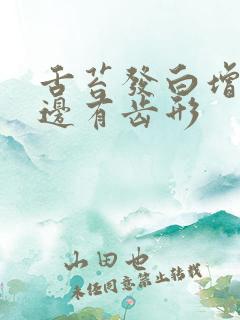 舌苔發白增
邊有齿形
山田也
未经同意禁止转载